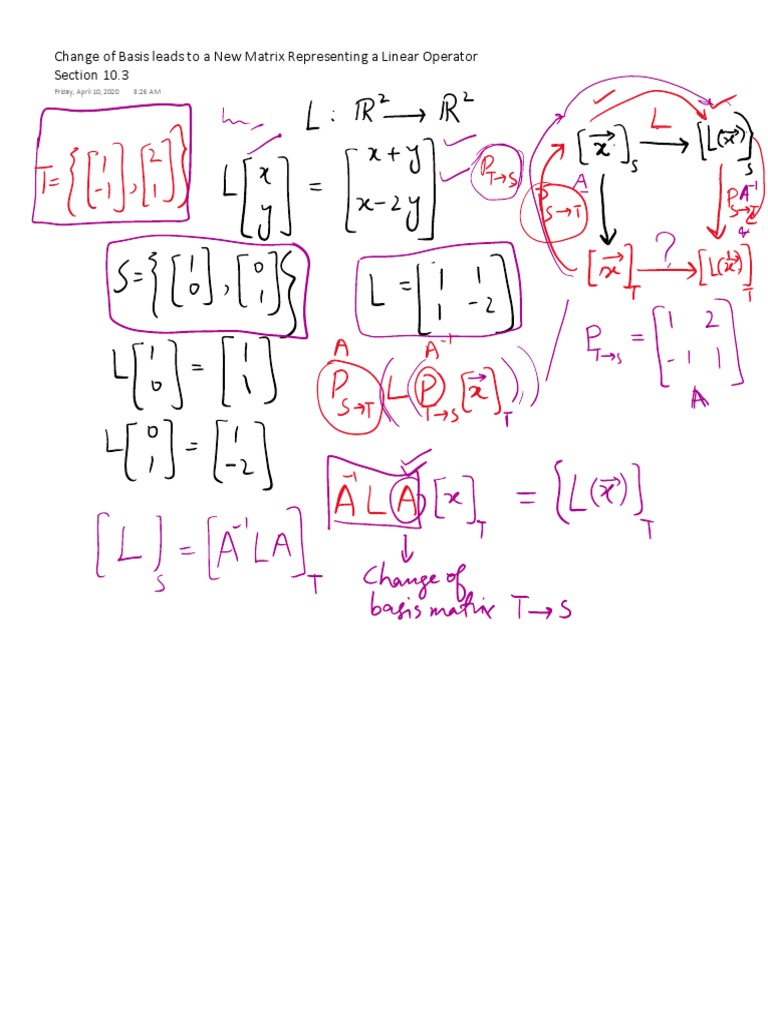 Change of Basis leads to a New Matrix Representing a Linear Operator
Section 10.3
Friday, April 10, 2020 8:26 AM
L : ℝ² → ℝ²
T = {[1 -1], [2 1]}
L[x y] = [x+y x-2y]
P T→S
S = {[1 0], [0 1]}
L = [1 1 1 -2]
L[1 0] = [1 1]
L[0 1] = [1 -2]
[x⃗]S → L [L(x⃗)]S
A
P S→T
A⁻¹
P S→T
[x⃗]T → ? [L(x⃗)]T
P T→S = [1 2 -1 1]
A
A A⁻¹
P S→T (L(P T→S [x⃗]T))
A⁻¹ L A [x]T = [L(x⃗)]T
[L]S = [A⁻¹LA]T
Change of
basis matrix T→S